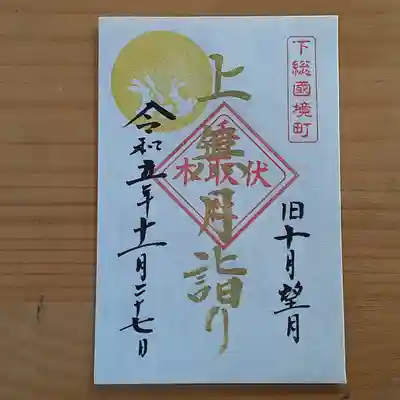 下総國境町
旧十月望月
上無月詣り
令和五年十一月二十七日